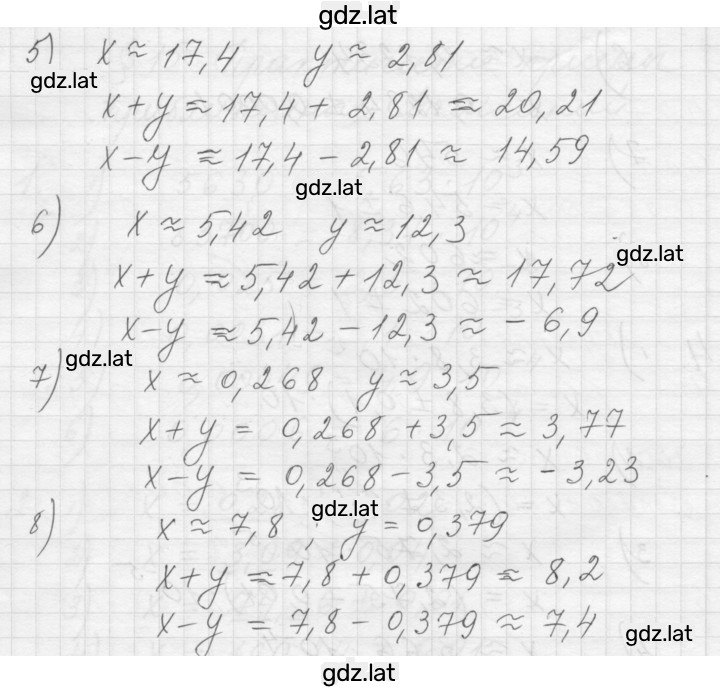 gdz.lat
5) x ≈ 17,4 y ≈ 2,81
gdz.lat
x+y ≈ 17,4 + 2,81 ≈ 20,21
x−y ≈ 17,4 − 2,81 ≈ 14,59
gdz.lat
6) x ≈ 5,42 y ≈ 12,3
gdz.lat
x+y ≈ 5,42 + 12,3 ≈ 17,72
x−y ≈ 5,42 − 12,3 ≈ −6,9
gdz.lat
7) x ≈ 0,268 y ≈ 3,5
x+y = 0,268 + 3,5 ≈ 3,77
x−y = 0,268 − 3,5 ≈ −3,23
gdz.lat
8) x ≈ 7,8 ; y = 0,379
x+y ≈ 7,8 + 0,379 ≈ 8,2
x−y = 7,8 − 0,379 ≈ 7,4
gdz.lat
gdz.lat